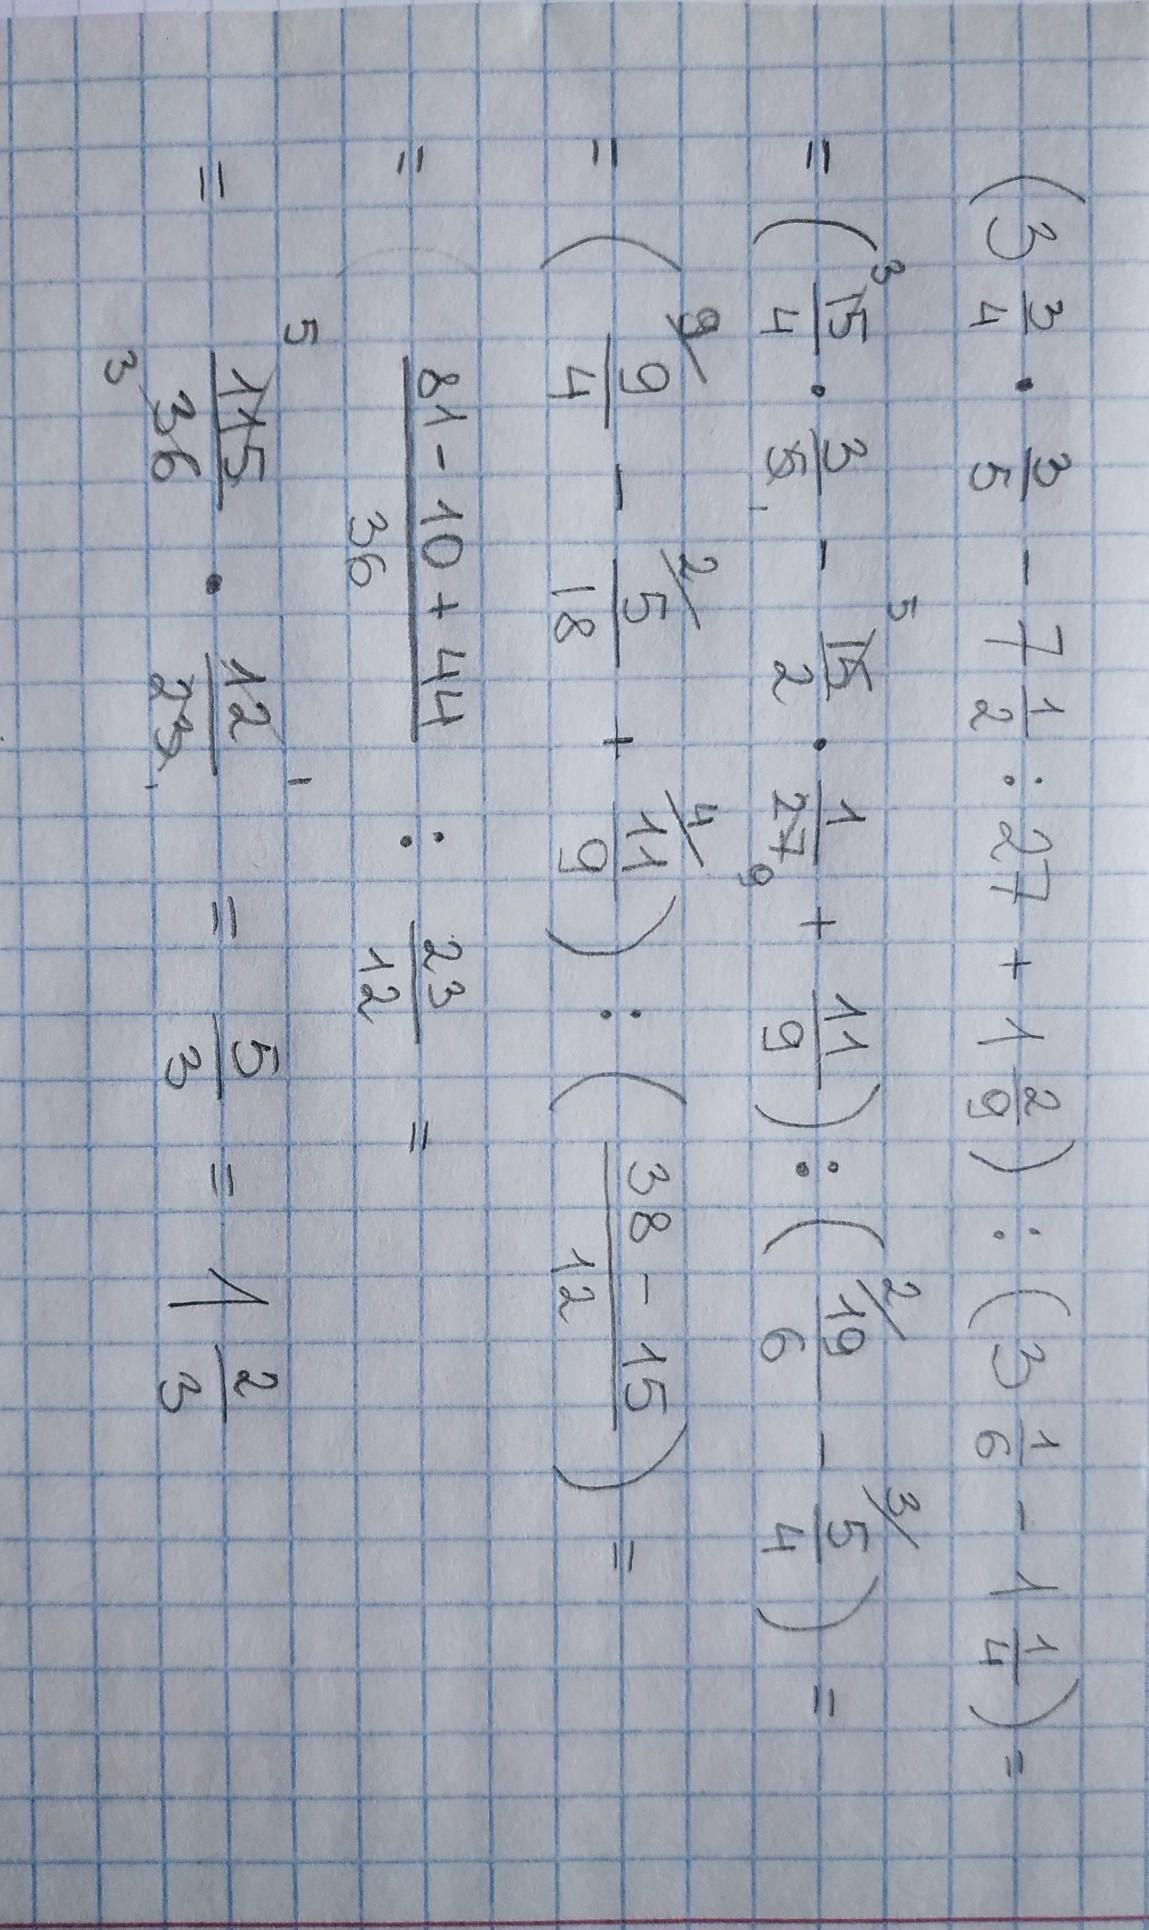 (3 3/4 · 3/5 - 7 1/2 : 27 + 1 2/9) : (3 1/6 - 1 1/4) =
= (³15/4 · 3/5₁ - ⁵15/2 · 1/27₉ + 11/9) : (²⁄19/6 - ³⁄5/4) =
= (⁹⁄9/4 - ²⁄5/18 + ⁴⁄11/9) : (38 - 15/12) =
= 81 - 10 + 44/36 : 23/12 =
= ⁵115/₃36 · 12¹/23₁ = 5/3 = 1 2/3